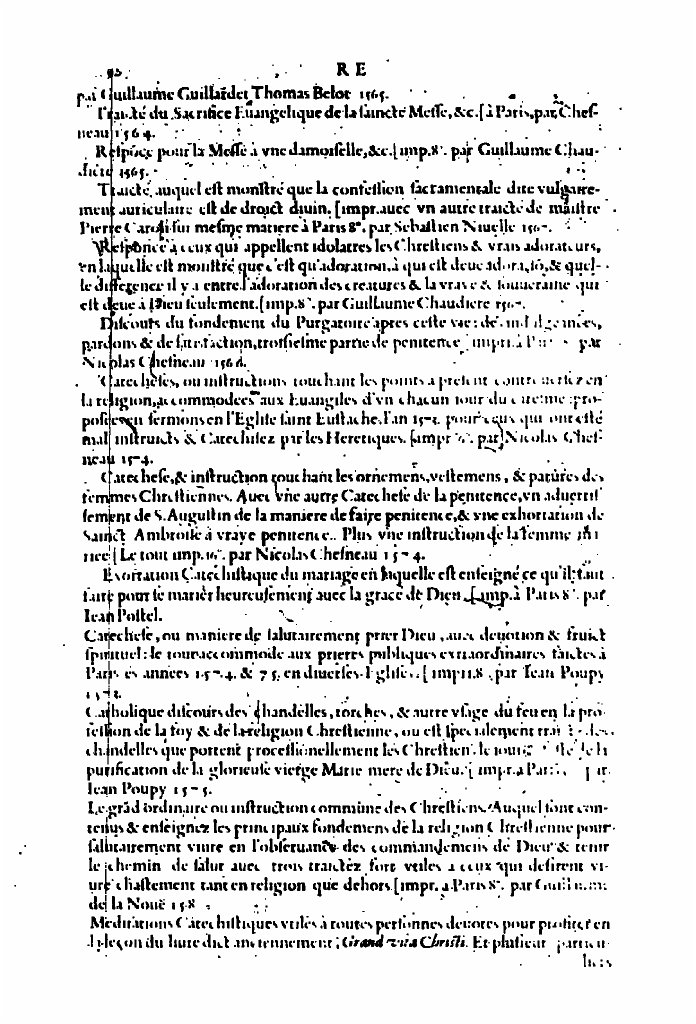 R E
par Guillaume Guillardet Thomas Belot 1565.
Traicté du Sacrifice Euangelique de la saincte Messe, &c. [à Paris, par Ches-
neau 1564.
Response pour la Messe à vne damoiselle, &c. [imp. 8°. par Guillaume Chau-
diere 1565.
Traicté, auquel est monstré que la confession sacramentale dite vulgaire-
ment auriculaire est de droict diuin. [impr. auec vn autre traicté de maistre
Pierre sur mesme matiere à Paris 8°. par Sebastien Niuelle 1567.
Response à ceux qui appellent idolatres les Chrestiens & vrais adorateurs,
en laquelle est monstré que c'est qu'adoration, à qui est deue adoratiõ, & quel-
le difference il y a entre l'adoration des creatures & la vraye & souueraine qui
est deue à Dieu seulement. [imp. 8°. par Guillaume Chaudiere 1567.
Discours du fondement du Purgatoire apres ceste vie: des indulgences,
pardons & de satisfaction, troisiesme partie de penitence [impri. à Paris par
Nicolas Chesneau 1566.
Catecheses, ou instructions touchant les points a present controuertiez en
la religion, accommodees aux Euangiles d'vn chacun iour du caresme: pro-
posees en sermons en l'Eglise saint Eustache, l'an 157 pour ceux qui ont esté
mal instruicts & Catechisez par les Heretiques. [impr par Nicolas Ches-
neau 1574.
Catechese, & instruction touchant les ornemens, vestemens, & parures des
femmes Chrestiennes. Auec vne autre Catechese de la penitence, vn aduertis-
sement de S. Augustin de la maniere de faire penitence, & vne exhortation de
Sainct Ambroise à vraye penitence. Plus vne instruction de la femme ma-
riee [Le tout imp. 16°. par Nicolas Chesneau 1574.
Exortation Catechistique du mariage en laquelle est enseigné ce qu'il faut
faire pour se marier heureusement auec la grace de Dieu. [imp. à Paris 8°. par
Iean Postel.
Catechese, ou maniere de salutairement prier Dieu, auec deuotion & fruict
spirituel: le tout accommodé aux prieres publiques extraordinaires faictes à
Paris és annees 1574. & 75. en diuerses Eglises. [impri. 8. par Iean Poupy
157
Catholique discours des chandelles, torches, & autre vsage du feu en la pro-
fession de la foy & de la religion Chrestienne, ou est specialement traité des
chandelles que portent processionellement les Chrestiens le iour de la
purification de la glorieuse vierge Marie mere de Dieu. [impr. à Paris par
Iean Poupy 1575.
Le grãd ordinaire ou instruction commune des Chrestiens: Auquel sont con-
tenus & enseignez les principaux fondemens de la religion Chrestienne pour
salutairement viure en l'obseruance des commandemens de Dieu & tenir
le chemin de salut auec trois traictez fort vtiles a ceux qui desirent vi-
ure chastement tant en religion que dehors. [impr. a Paris 8°. par Guillaume
de la Nouë 158
Meditations Catechistiques vtiles à toutes personnes deuotes pour profiter en
la leçon du liure dict anciennement, Grand vita Christi. Et plusieur particu-
liers